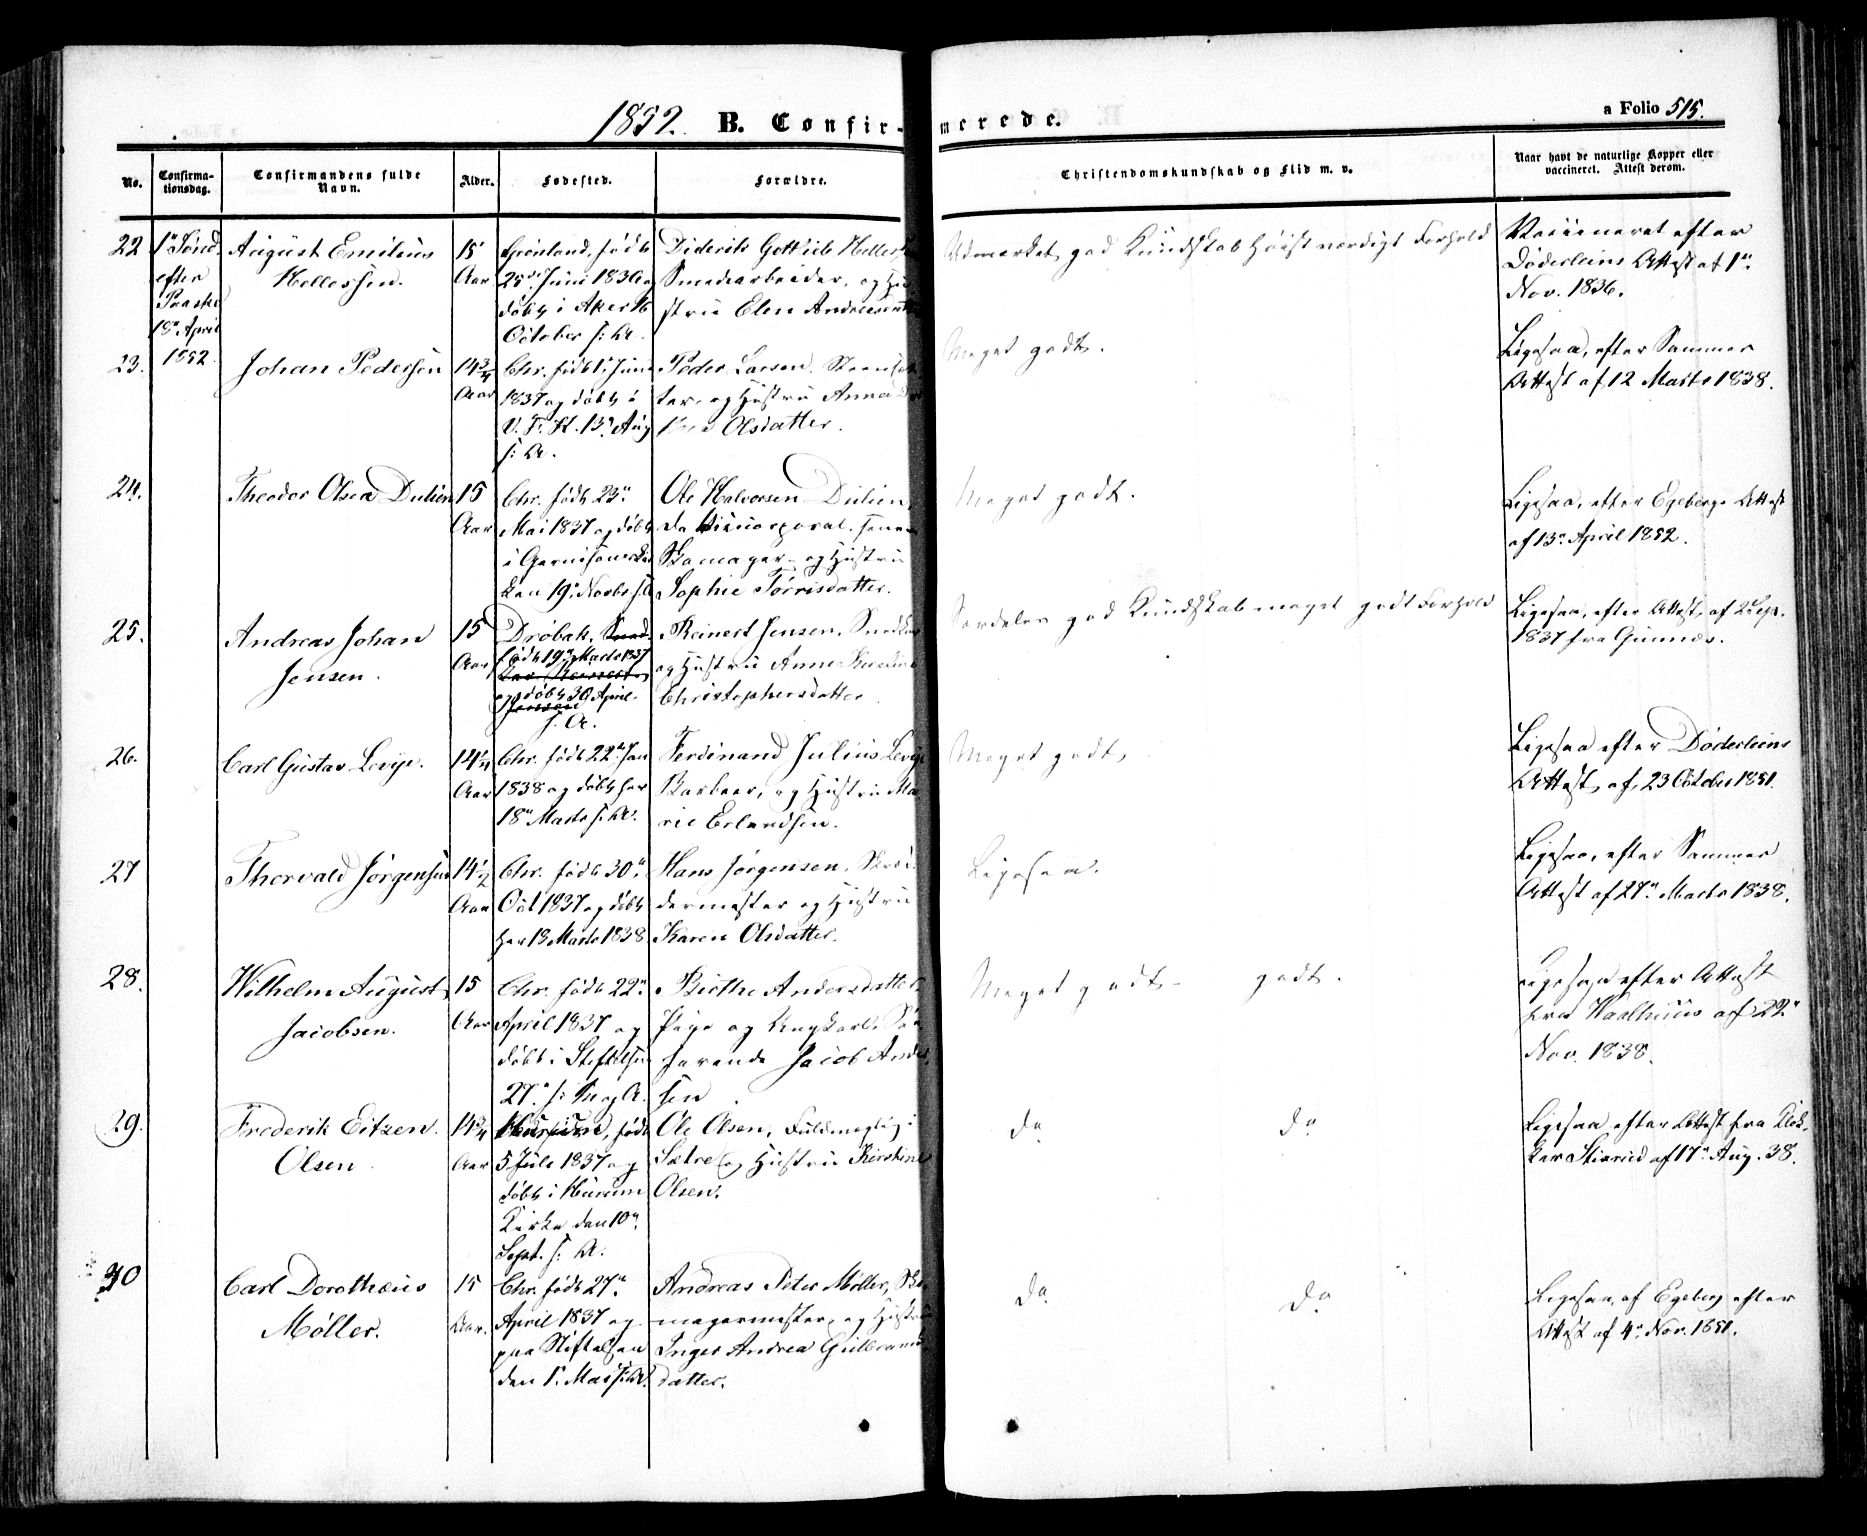 1852. B. Confirmerede. a Folio 515.
No. Confirmationsdag. Confirmandens fulde Navn. Alder. Fødested. Forældre. Christendomskundskab og Flid m. v. Naar havt de naturlige Kopper eller vaccineret. Attest derom.
22
1ste Sönd.
efter
Paaske
18de April
1852.
August Emilius
Hellessen.
15
Aar
Grönland, födt
25de Juni 1836 og
döbt i Aker 16
October s: A.
Diderik Gottlieb Hellessen
Smedearbeider, og Hu-
stru Elen Andreasdatter
Udmærket god Kundskab Höist værdigt Forhold
Vaccineret efter
Döderleins Attest af 1ste
Nov. 1836.
23.
Johan Pedersen
14 3/4
Aar
Chr. födt 1ste Juni
1837 og döbt i
V. F. K. 13de Aug
s: A.
Peder Larsen,
og Hustru Anna
Olsdatter.
Meget godt.
Ligesaa, efter Sammes
Attest af 12 Marts 1838.
24.
Theodor Olsen Dulien
15
Aar
Chr. födt 23de
Mai 1837 og döbt
i Garnisonskir
ken 19de Novbr s: A
Ole Halvorsen Dulien,
da Vicecorporal, senere
Skomager og Hustru
Sophie Törrisdatter.
Meget godt.
Ligesaa, efter Egebergs Attest
af 13de April 1852.
25.
Andreas Johan
Jensen.
15
Aar
Dröbak,
födt 19de Marts 1837
og döbt 30 April
s. A.
Reinert Jensen, Snedker
og Hustru Anne
Christophersdatter
Særdeles god Kundskab meget godt Forhold
Ligesaa, efter Attest, af 2 Sep.
1837 fra
26.
Carl Gustav Levye.
14 1/4
Aar
Chr. födt 22de Jan
1838 og döbt her
18de Marts s: A.
Ferdinand Julius Levye
Barbeer, og Hustru Ma
rie Erlandsen.
Meget godt,
Ligesaa efter Döderleins
Attest, af 23 October 1851.
27
Thorvald Jörgensen
14 1/2
Aar
Chr. födt 30de
Oct 1837 og döbt
her 18 Marts 1838
Hans Jörgensen, Skræd-
dermester og Hustru
Karen Olsdatter.
Ligesaa.
Ligesaa, efter Sammes
Attest af 27de Marts 1838.
28.
Wilhelm August
Jacobsen.
15
Aar
Chr. födt 22de
April 1837 og
döbt i Stiftelsen
27de s: M og A.
Birthe Andersdatter,
Pige og Ungkarl, Sö
farende Jacob Ander
sen
Meget godt - godt.
Ligesaa efter Attest
fra af 22de
Nov. 1838.
29.
Frederik Eitzen
Olsen
14 3/4
Aar
Hurum, födt
5 Juli 1837 og
döbt i Hurum
Kirke den 10de
Sept. s: A.
Ole Olsen, Fuldmægtig i
Sætre og Hustru Kirstine
Olsen.
do do
Ligesaa efter Attest fra Klok-
ker af 17de Aug. 38.
30
Carl Dorothæus
Möller.
15
Aar.
Chr. födt 27de
April 1837 og
paa Stiftelsen
den 1ste Mai s: A.
Andreas Peter Möller, Sko
magermester, og Hustru
Inger Andrea Gulbrands
datter.
do do
Ligesaa, af Egeberg efter
Attest af 4de Nov. 1851.